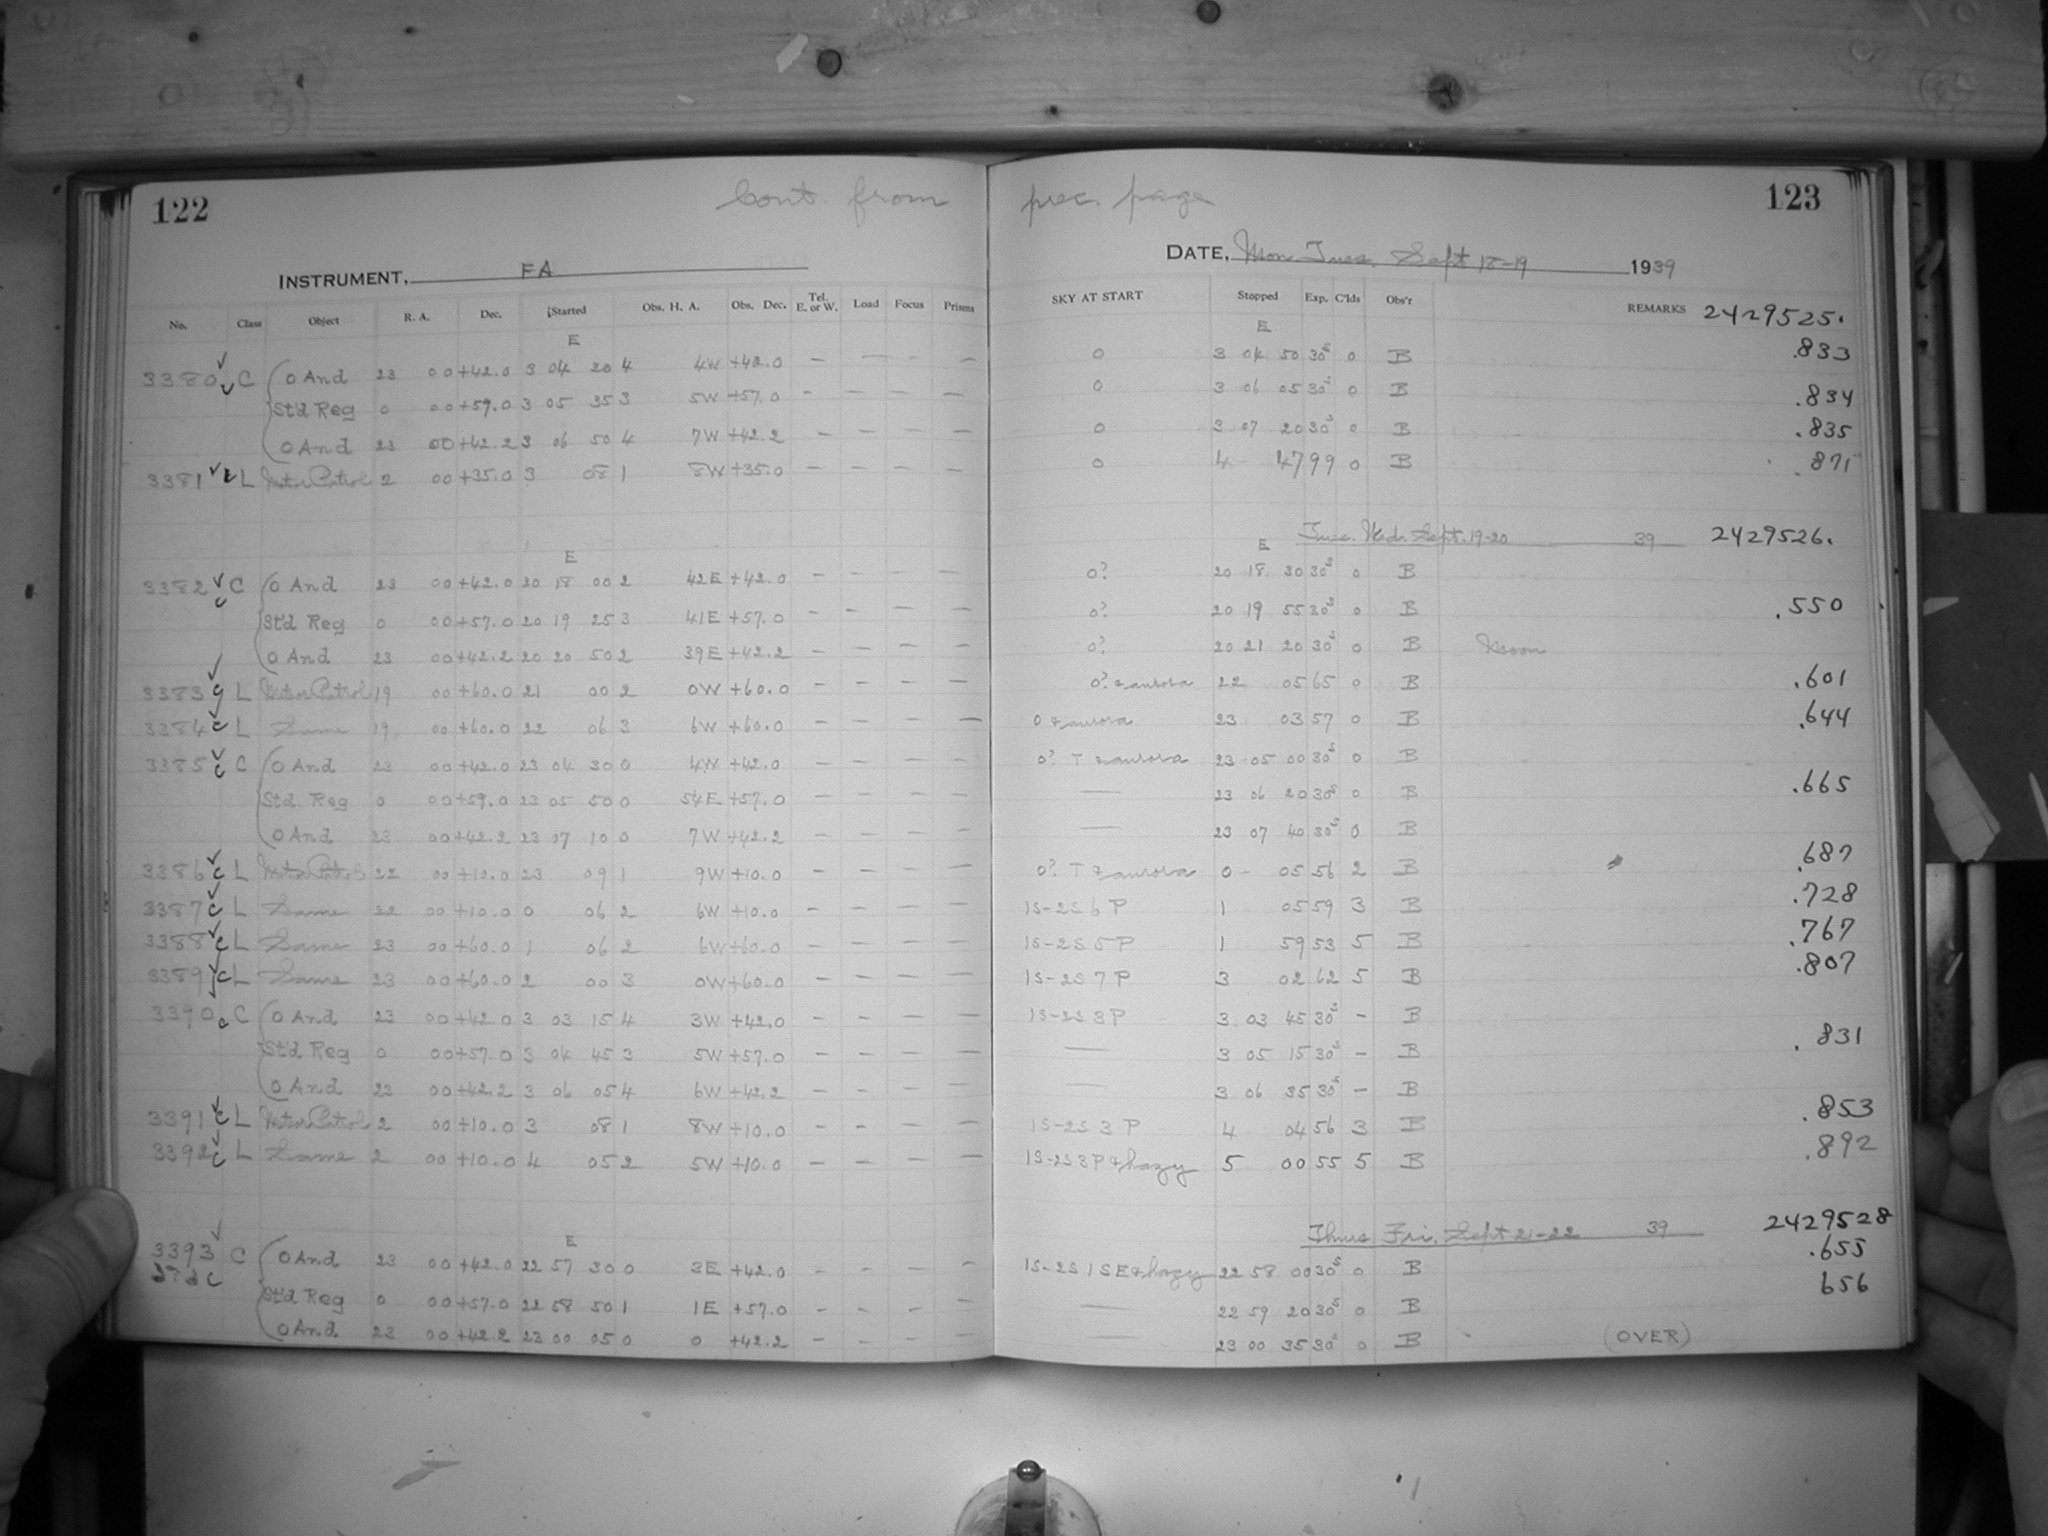 122 Cont. from prec. page 123
INSTRUMENT, FA DATE, Mon Tues. Sept 18-19 1939
No. Class Object R. A. Dec. Started Obs. H. A. Obs. Dec. Tel. E. or W. Load Focus Prisms SKY AT START Stopped Exp. C'lds Obs'r REMARKS 2429525.
E E
3380 C O And 23 00 +42.0 3 04 20 4 4W +42.0 – – – – 0 3 04 50 30s 0 B .833
Std Reg 0 00 +59.0 3 05 35 3 5W +57.0 – – – – 0 3 06 05 30s 0 B .834
O And 23 00 +42.2 3 06 50 4 7W +42.2 – – – – 0 3 07 20 30s 0 B .835
3381 L Meteor Patrol 2 00 +35.0 3 08 1 8W +35.0 – – – – 0 4 47 99 0 B .871
Tues. Wed. Sept. 19-20 39 2429526.
E E
3382 C O And 23 00 +42.0 20 18 00 2 42E +42.0 – – – – 0? 20 18 30 30s 0 B
Std Reg 0 00 +57.0 20 19 25 3 41E +57.0 – – – – 0? 20 19 55 30s 0 B .550
O And 23 00 +42.2 20 20 50 2 39E +42.2 – – – – 0? 20 21 20 30s 0 B Moon
3383 L Meteor Patrol 19 00 +60.0 21 00 2 0W +60.0 – – – – 0? & aurora 22 05 65 0 B .601
3384 c L Same 19 00 +60.0 22 06 3 6W +60.0 – – – – 0 & aurora 23 03 57 0 B .644
3385 c C O And 23 00 +42.0 23 04 30 0 4W +42.0 – – – – 0? T & aurora 23 05 00 30s 0 B
Std. Reg 0 00 +59.0 23 05 50 0 54E +57.0 – – – – — 23 06 20 30s 0 B .665
O And 23 00 +42.2 23 07 10 0 7W +42.2 – – – – — 23 07 40 30s 0 B
3386 c L Meteor Patrol 22 00 +10.0 23 09 1 9W +10.0 – – – – 0? T & aurora 0 05 56 2 B .687
3387 c L Same 22 00 +10.0 0 06 2 6W +10.0 – – – – 1S-2S 6 P 1 05 59 3 B .728
3388 c L Same 23 00 +60.0 1 06 2 6W +60.0 – – – – 1S-2S 5 P 1 59 53 5 B .767
3389 c L Same 23 00 +60.0 2 00 3 0W +60.0 – – – – 1S-2S 7 P 3 02 62 5 B .807
3390 c C O And 23 00 +42.0 3 03 15 4 3W +42.0 – – – – 1S-2S 3 P 3 03 45 30s – B
Std Reg 0 00 +57.0 3 04 45 3 5W +57.0 – – – – — 3 05 15 30s – B .831
O And 23 00 +42.2 3 06 05 4 6W +42.2 – – – – — 3 06 35 30s – B
3391 c L Meteor Patrol 2 00 +10.0 3 08 1 8W +10.0 – – – – 1S-2S 3 P 4 04 56 3 B .853
3392 c L Same 2 00 +10.0 4 05 2 5W +10.0 – – – – 1S-2S 3 P & hazy 5 00 55 5 B .892
Thurs Fri. Sept 21-22 39 2429528
E
3393 C O And 23 00 +42.0 22 57 30 0 3E +42.0 – – – – 1S-2S 1 S E & hazy 22 58 00 30s 0 B .655
Std Reg 0 00 +57.0 22 58 50 1 1E +57.0 – – – – — 22 59 20 30s 0 B 656
O And 23 00 +42.2 23 00 05 0 0 +42.2 – – – – — 23 00 35 30s 0 B (OVER)